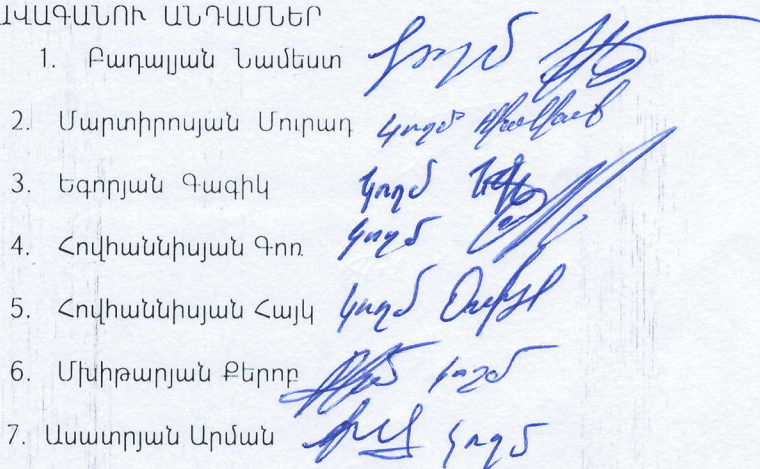 ԱՎԱԳԱՆՈՒ ԱՆԴԱՄՆԵՐ
1. Բադալյան Նամեստ կողմ
2. Մարտիրոսյան Մուրադ կողմ
3. Եգորյան Գագիկ կողմ
4. Հովհաննիսյան Գոռ կողմ
5. Հովհաննիսյան Հայկ կողմ
6. Մխիթարյան Քերոբ կողմ
7. Ասատրյան Արման կողմ